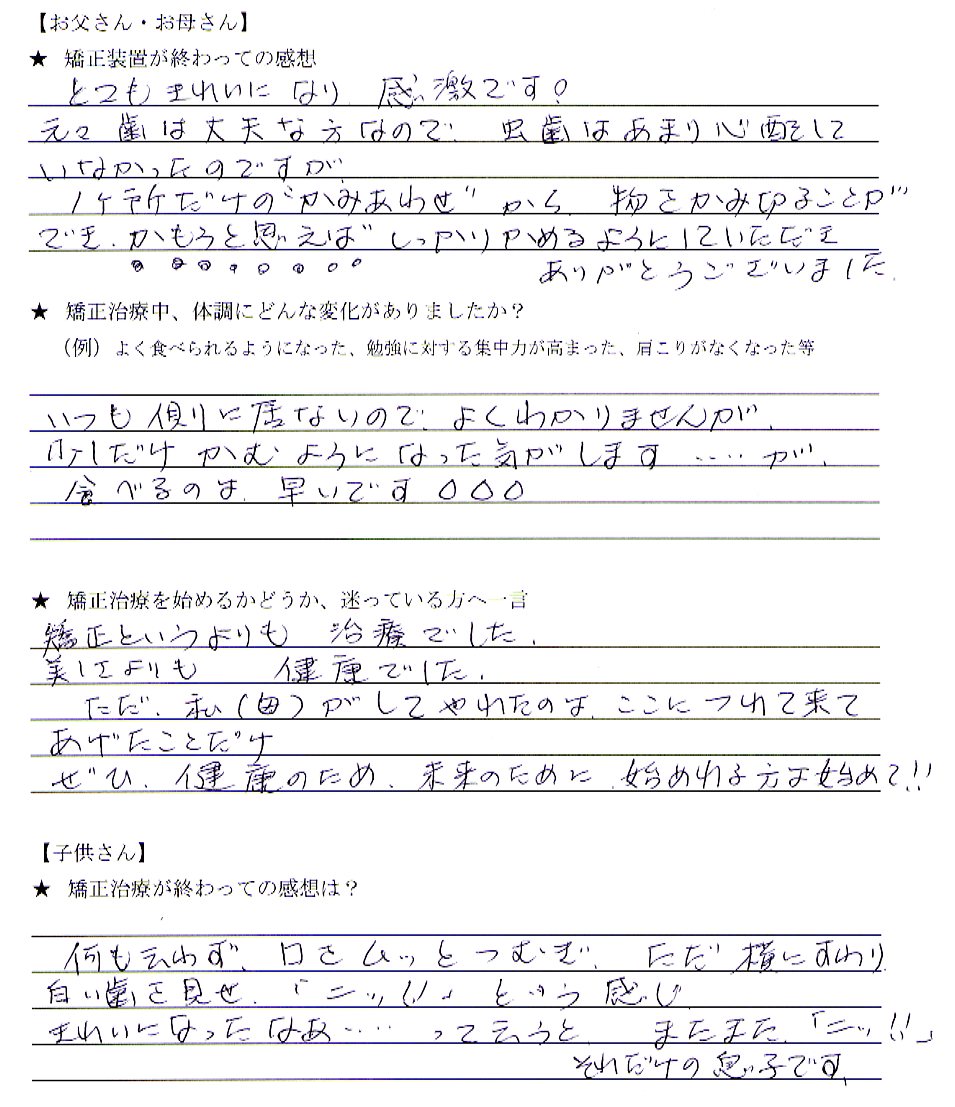 【お父さん・お母さん】
★ 矯正装置が終わっての感想
とてもきれいになり 感激です?
元々歯は丈夫な方なので、虫歯はあまり心配をして
いなかったのですが、
1ケ所だけの"かみあわせ"から、物をかみ切ることが
でき、かもうと思えばしっかりかめるようにしていただき
ありがとうございました。
★ 矯正治療中、体調にどんな変化がありましたか?
(例)よく食べられるようになった、勉強に対する集中力が高まった、肩こりがなくなった等
いつも側に居ないので、よくわかりませんが、
少しだけ かむようになった気がします ‥‥ が、
食べるのは、早いです 〇〇〇
★ 矯正治療を始めるかどうか、迷っている方へ一言
矯正というよりも 治療でした。
美しさよりも 健康でした。
ただ、私(母)がしてやれたのは、ここにつれて来て
あげたことだけ
ぜひ、健康のため、未来のために、始めれる方は始めて!!
【子供さん】
★ 矯正治療が終わっての感想は?
何も云わず、口をムッとつむぎ、ただ横にすわり
白い歯を見せ、「ニッ!!」という感じ
きれいになったなあ‥‥って云うと、またまた、「ニッ!!」
それだけの息子です。